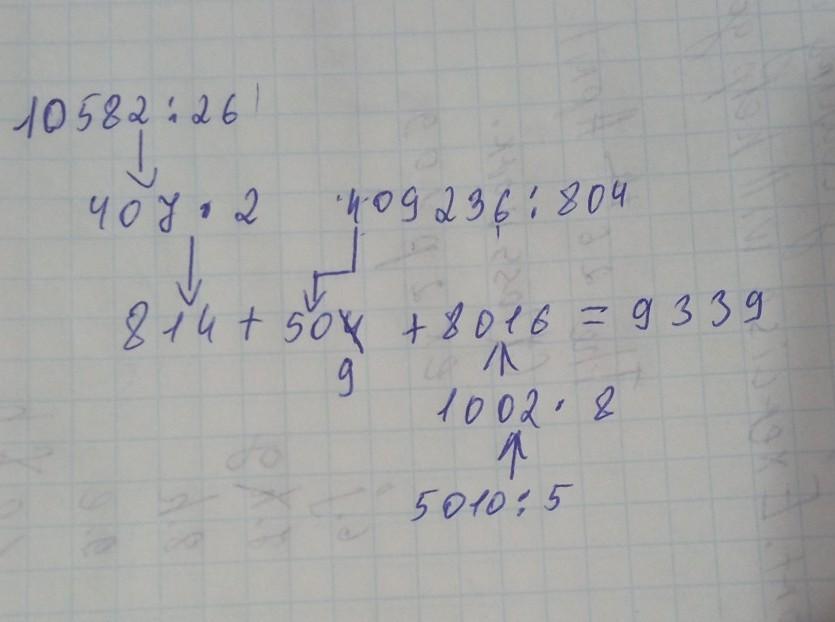 10582 : 26
407 · 2 409236 : 804
814 + 504 + 8016 = 9339
9
1002 · 8
5010 : 5